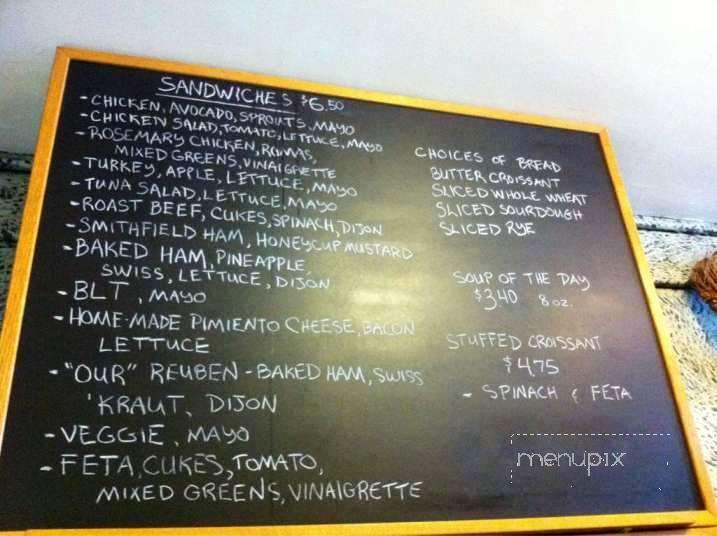 SANDWICHES $6.50
- CHICKEN, AVOCADO, SPROUTS, MAYO
- CHICKEN SALAD, TOMATO, LETTUCE, MAYO
- ROSEMARY CHICKEN, ROMAS,
MIXED GREENS, VINAIGRETTE
- TURKEY, APPLE, LETTUCE, MAYO
- TUNA SALAD, LETTUCE, MAYO
- ROAST BEEF, CUKES, SPINACH, DIJON
- SMITHFIELD HAM, HONEYCUP MUSTARD
- BAKED HAM, PINEAPPLE
SWISS, LETTUCE, DIJON
- BLT, MAYO
- HOME-MADE PIMIENTO CHEESE, BACON
LETTUCE
- "OUR" REUBEN - BAKED HAM, SWISS
'KRAUT, DIJON
- VEGGIE, MAYO
- FETA, CUKES, TOMATO,
MIXED GREENS, VINAIGRETTE
CHOICES OF BREAD
BUTTER CROISSANT
SLICED WHOLE WHEAT
SLICED SOURDOUGH
SLICED RYE
SOUP OF THE DAY
$3.40 8 oz.
STUFFED CROISSANT
$4.75
- SPINACH & FETA
menupix